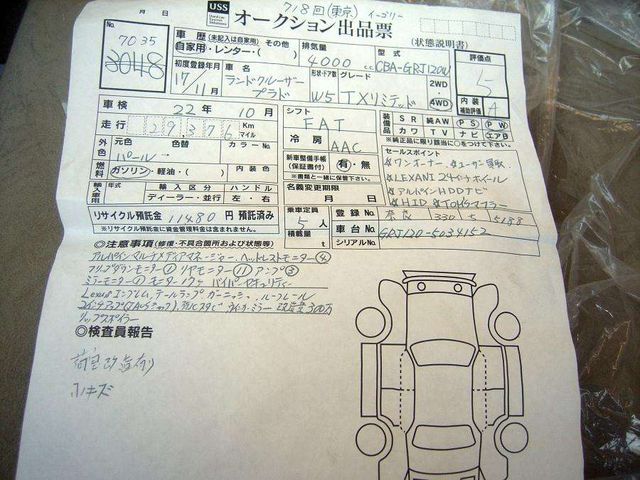 718回(東京) イーゴリー
月 日
USS オークション出品票
(状態説明書)
No. 7035
2048
車歴 (未記入は自家用) その他
自家用・レンター・( )
排気量 4000 cc
型式 CBA-GRJ120W
評価点 5
初度登録年月 17/11月
ランドクルーザー プラド
形状・ドア数 W5
グレード TXリミテッド
2WD・4WD
内装補助評価 A
車検 22年10月
シフト FAT
装備品 SR 純AW PS PW
カワ TV ナビ エアB
※純正品に限り○で囲む
走行 29,376 Km マイル
冷房 AAC
セールスポイント
外色 元色 パール 色替 カラーNo.
新車整備手帳(保証書付) 有・無
※書類と一緒に保管して下さい
#ワンオーナー、#ユーザー買取
#LEXANI24インチホイール
燃料 ガソリン・軽油・( )
#アルパインHDDナビ
輸入車用 年式 輸入区分 ディーラー・並行 ハンドル 左・右
名義変更期限 月 日
#HID #TOM'Sマフラー
リサイクル預託金 11480 円 預託済み
※リサイクル預託金に資金管理料金は含まれません。
乗車定員 5 人
積載量 t
登録No. 奈良 330 ち 5188
車台No. GRJ120-5034152
シリアルNo.
◎注意事項 (修復・不具合箇所および状態等)
アルパインマルチメディアマネージャー ヘッドレストモニター④
フリップダウンモニター① リヤモニター⑪ アンプ③
ミラーモニター① バイパーセキュリティー
Lexusエンブレム、テールランプガーニッシュ、ルーフレール
ウインカーミラー 改造費300万
リップスポイラー
◎検査員報告
荷室改造有り
小キズ